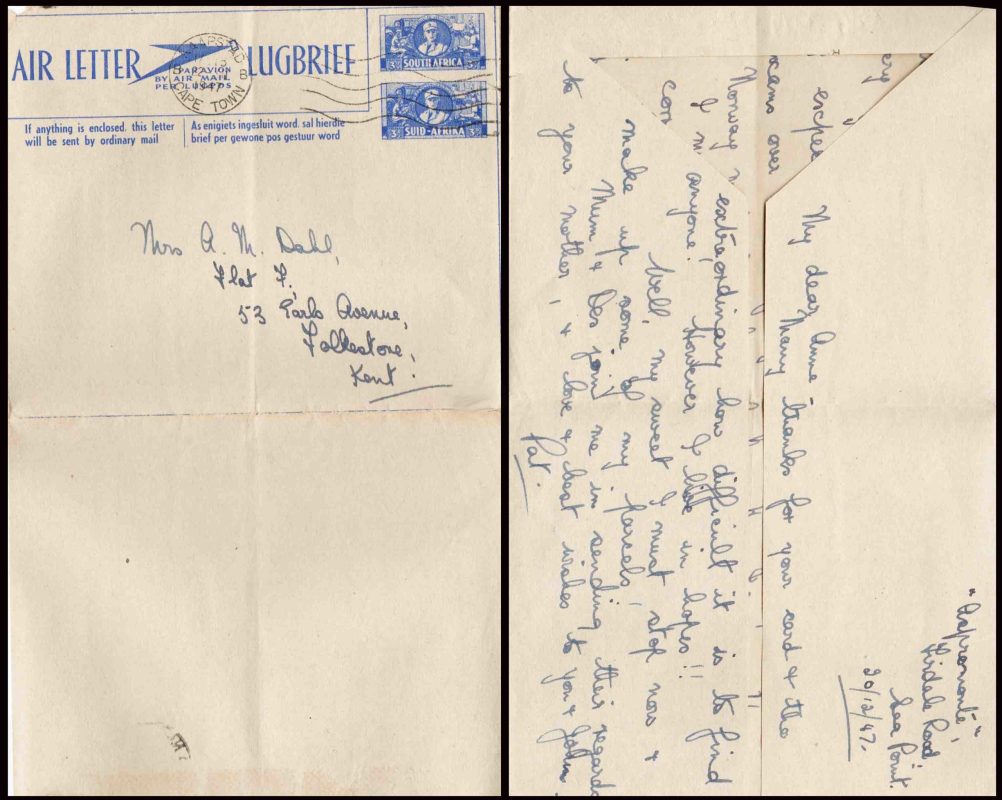 AIR LETTER
LUGBRIEF
PAR AVION
BY AIR MAIL
PER LUGPOS
KAAPSTAD
1947
CAPE TOWN
SOUTH AFRICA
3
SUID-AFRIKA
3
If anything is enclosed, this letter
will be sent by ordinary mail
As enigiets ingesluit word, sal hierdie
brief per gewone pos gestuur word
Mrs A. M. Dahl,
Flat F,
53 Earls Avenue,
Folkestone,
Kent.
"Aspromonté",
Firdale Road
Sea Point.
20/12/47.
My dear Anne
Many thanks for your card & the
over
Norway
extraordinary how difficult it is to find
anyone. However I live in hopes!!
Well, my sweet I must stop now &
make up some of my parcels,
Mum & Des join me in sending their regards
to your mother, & love & best wishes to you & John
Pat.